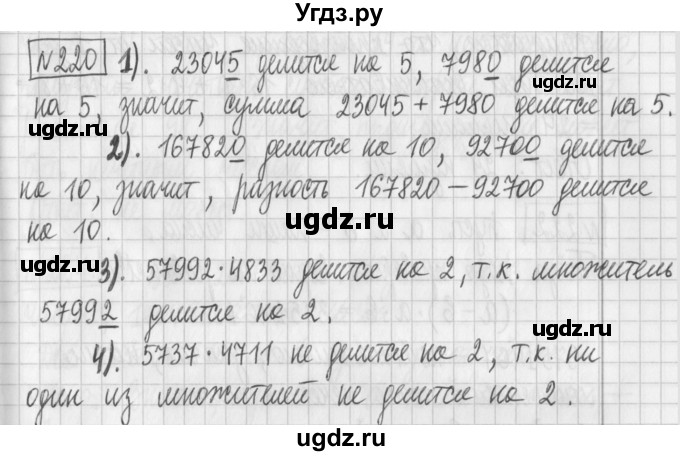 Угдз.ру
№220 1). 23045 делится на 5, 7980 делится
на 5, значит, сумма 23045 + 7980 делится на 5.
ugdz.ru
ugdz.ru
2). 167820 делится на 10, 92700 делится
на 10, значит, разность 167820 – 92700 делится
ugdz.ru
на 10.
ugdz.ru
ugdz.ru
3). 57992 · 4833 делится на 2, т.к. множитель
57992 делится на 2.
ugdz.ru
4). 5737 · 4711 не делится на 2, т.к. ни
ugdz.ru
ugdz.ru
один из множителей не делится на 2.
ugdz.ru